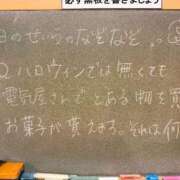 必ず黒板を書きましょう
日のせいらのなぞなぞ
Q ハロウィンでは無くても
電気屋さんで とある物を買
お菓子が貰えまる。それは何